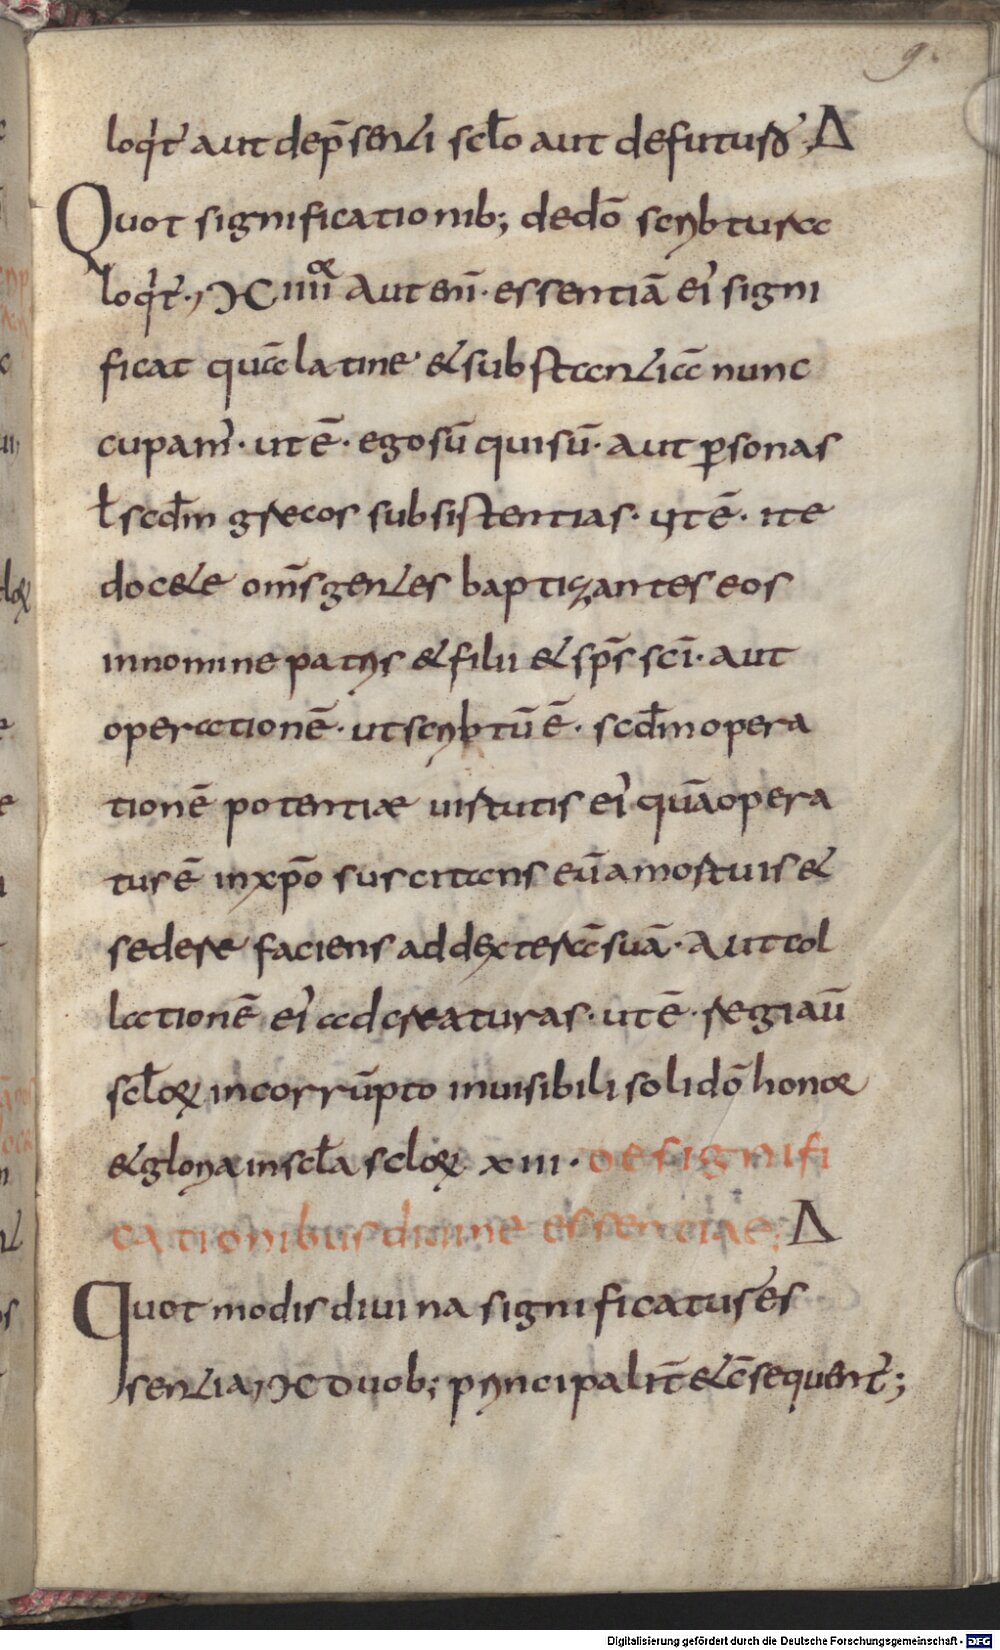 9.
loqͥt̄ aut dep̄senti scl̄o aut defuturo. Δ
Quot significationib; dedō scribtura
loqͥt̄. ΜC iiiior Aut enī. essentiā ei' signi
ficat quā latine & substantiā nunc
cupam'. ut ē. ego sū qui sū. aut ꝑsonas
ł scd̄m grecos subsistentias. ut ē. ite
docete om̄s gentes baptizantes eos
in nomine patris & filii & sp̄s sc̄i. aut
operationē. ut scribtū ē. scd̄m opera
tionē potentiæ uirtutis ei' quā opera
tus ē in xp̄o suscitans eū a mortuis &
sedere faciens ad dexterā suā. Aut col
lationē ei' ad creaturas. ut ē. regi aū
scl̄oꝝ incorrūpto inuisibili soli dō honor
& gloria in scl̄a scloꝝ xiii. De signifi
cationibus diuine essentiae; Δ
Quot modis diuina significatur es
sentia; ΜC Duob; principalit̄ & c̄sequent̄;
Digitalisierung gefördert durch die Deutsche Forschungsgemeinschaft - DFG